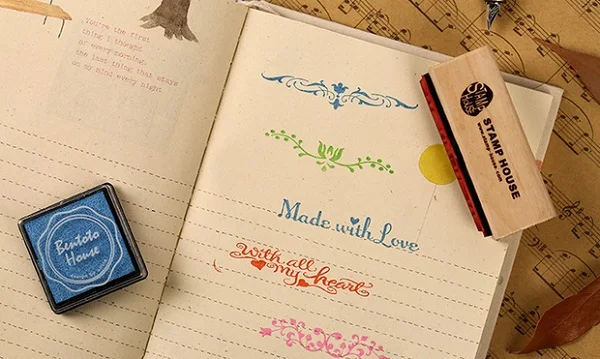 You're the first
thing I thought
of every morning.
the last thing that stays
on my mind every night
Made with Love
With all
my heart
Bentoto
House
STAMP
HOUSE
STAMP HOUSE
www.stamp-house.com